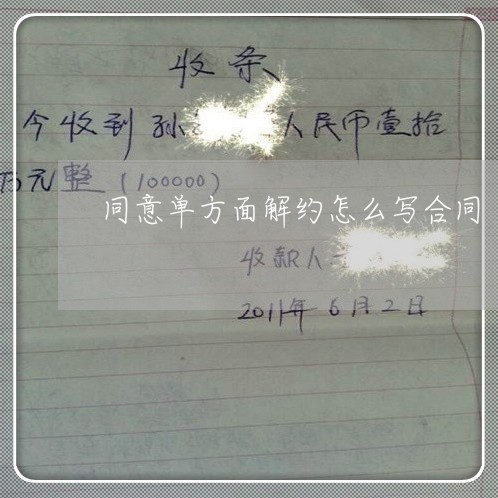 收条
今收到孙 人民币壹拾
万元整(100000)
同意单方面解约怎么写合同
收款人
2011年6月2日